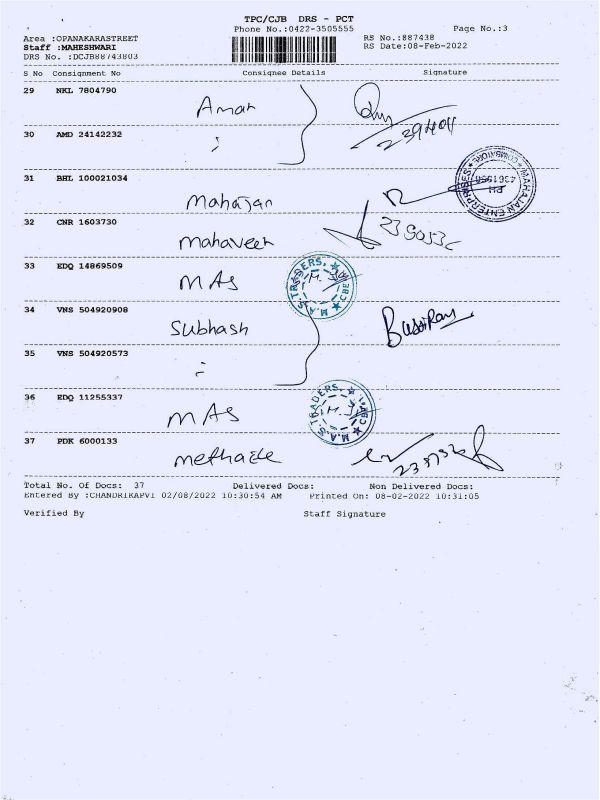 TPC/CJB DRS - PCT
Phone No.:0422-3505555 Page No.:3
Area :OPANAKARASTREET RS No.:887438
Staff :MAHESHWARI RS Date:08-Feb-2022
DRS No. :DCJB88743803
S No Consignment No Consignee Details Signature
29 NKL 7804790
Aman
239404
30 AMD 24142232
31 BHL 100021034
Mahajan
MAHAJAN ENTERPRISES
32 CNR 1603730
Mahaveer
33 EDQ 14869509
MAS
M.A.S.TRADERS. CBE
34 VNS 504920908
Subhash
35 VNS 504920573
36 EDQ 11255337
MAS
M.A.S.TRADERS.
37 PDK 6000133
Total No. Of Docs: 37 Delivered Docs: Non Delivered Docs:
Entered By :CHANDRIKAPVI 02/08/2022 10:30:54 AM Printed On: 08-02-2022 10:31:05
Verified By Staff Signature